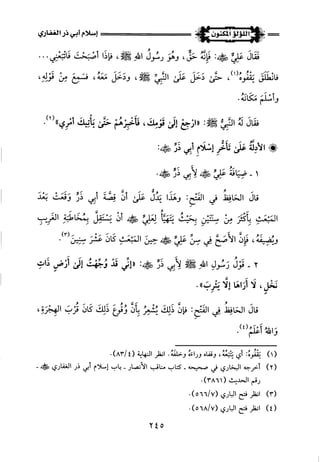 إسلام أبي ذر الغفاري
اللؤلؤ المكنون
فَقَالَ عَلِيٌّ ﷺ: فَإِنَّهُ حَقٌّ، وَهُوَ رَسُولُ اللهِ ﷺ، فَإِذَا أَصْبَحْتَ فَاتْبَعْنِي...
فَانْطَلَقَ يَقْفُوهُ(١)، حَتَّى دَخَلَ عَلَى النَّبِيِّ ﷺ، وَدَخَلَ مَعَهُ، فَسَمِعَ مِنْ قَوْلِهِ،
وَأَسْلَمَ مَكَانَهُ.
فَقَالَ لَهُ النَّبِيُّ ﷺ: «ارْجِعْ إِلَى قَوْمِكَ، فَأَخْبِرْهُمْ حَتَّى يَأْتِيَكَ أَمْرِي»(٢).
* الأَدِلَّةُ عَلَى تَأَخُّرِ إِسْلَامِ أَبِي ذَرٍّ ﷺ:
١ - ضِيَافَةُ عَلِيٍّ ﷺ لِأَبِي ذَرٍّ ﷺ.
قَالَ الحَافِظُ فِي الفَتْحِ: وَهَذَا يَدُلُّ عَلَى أَنَّ قِصَّةَ أَبِي ذَرٍّ وَقَعَتْ بَعْدَ
المَبْعَثِ بِأَكْثَرَ مِنْ سَنَتَيْنِ بِحَيْثُ يَتَهَيَّأُ لِعَلِيٍّ ﷺ أَنْ يَسْتَقِلَّ بِمُخَاطَبَةِ الغَرِيبِ
وَيُضِيفَهُ، فَإِنَّ الأَصَحَّ فِي سِنِّ عَلِيٍّ ﷺ حِينَ المَبْعَثِ كَانَ عَشْرَ سِنِينَ(٣).
٢ - قَوْلُ رَسُولِ اللهِ ﷺ لِأَبِي ذَرٍّ ﷺ: «إِنِّي قَدْ وُجِّهْتُ إِلَى أَرْضٍ ذَاتِ
نَخْلٍ، لَا أَرَاهَا إِلَّا يَثْرِبَ».
قَالَ الحَافِظُ فِي الفَتْحِ: فَإِنَّ ذَلِكَ يُشْعِرُ بِأَنَّ وُقُوعَ ذَلِكَ كَانَ قُرْبَ الهِجْرَةِ،
وَاللهُ أَعْلَمُ(٤).
(١) يَقْفُوهُ: أي يَتْبَعُهُ، وقفاه وراءُهُ وخلفَهُ. انظر النهاية (٨٣/٤).
(٢) أخرجه البخاري في صحيحه - كتاب مناقب الأنصار - باب إسلام أبي ذر الغفاري ﷺ -
رقم الحديث (٣٨٦١).
(٣) انظر فتح الباري (٥٦٦/٧).
(٤) انظر فتح الباري (٥٦٨/٧).
٢٤٥